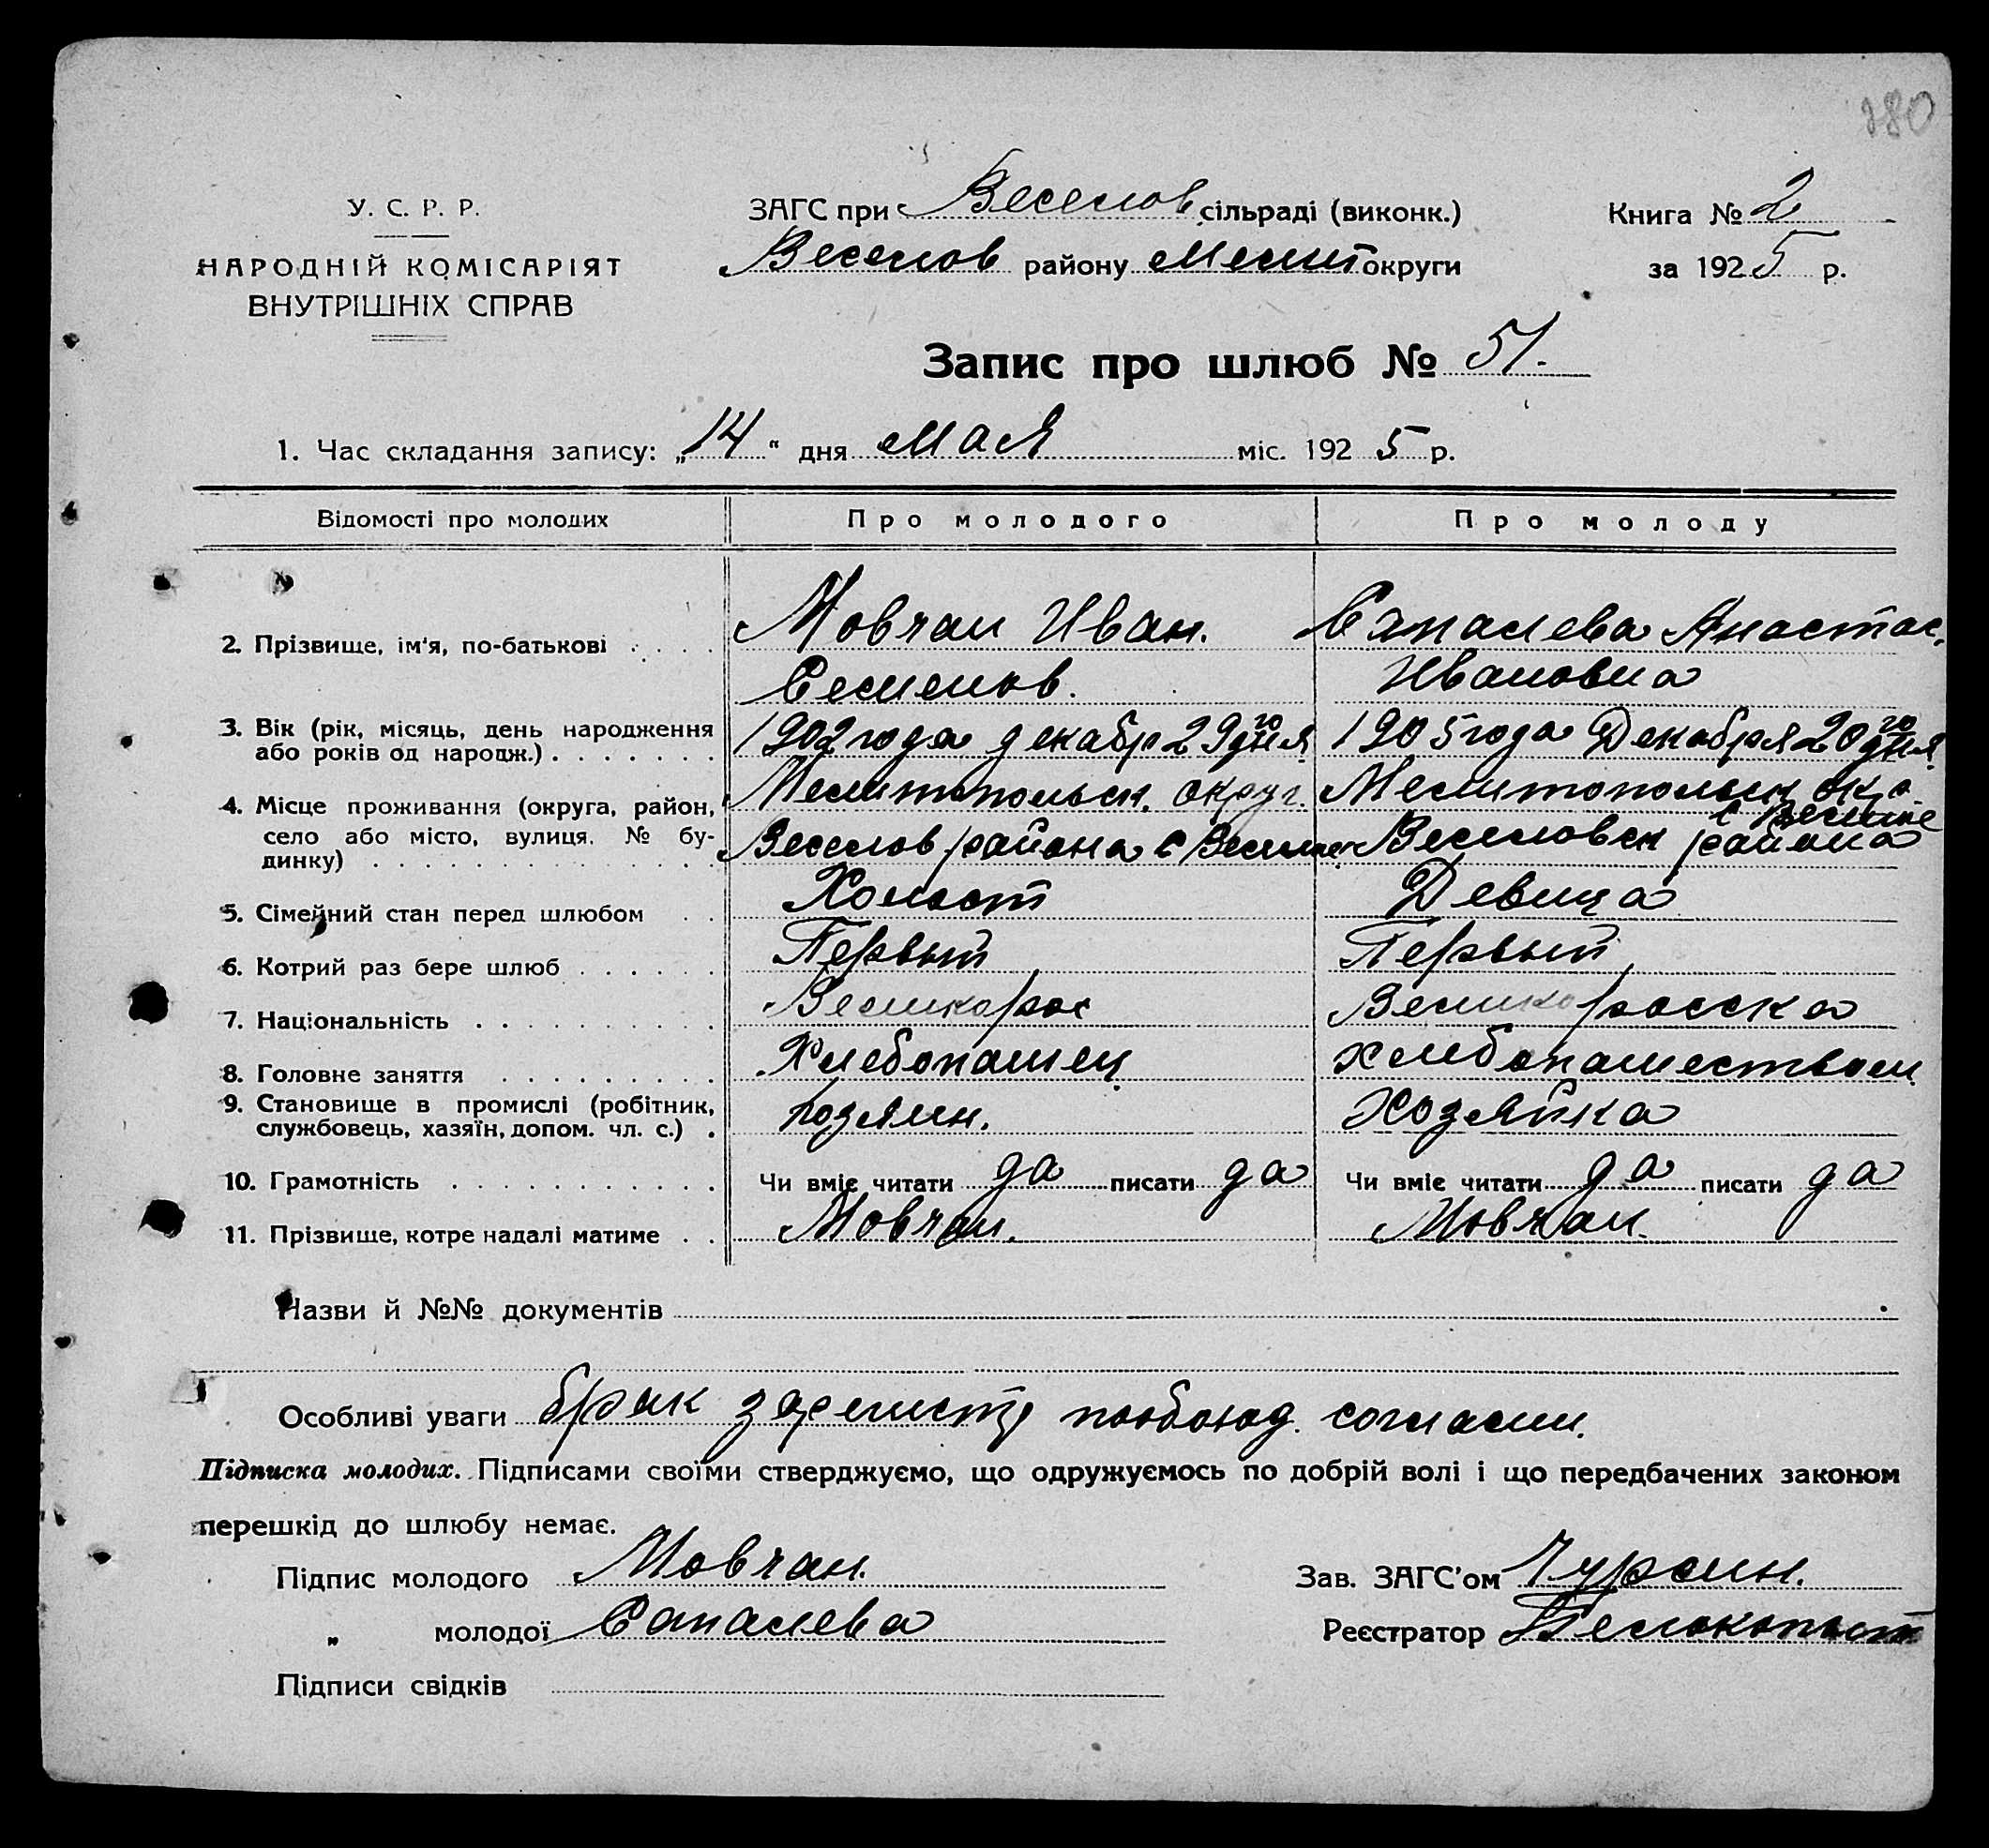 380
У. С. Р. Р.
НАРОДНІЙ КОМІСАРІЯТ
ВНУТРІШНІХ СПРАВ
ЗАГС при Веселов сільраді (виконк.)
Веселов району Мелит округи
Книга № 2
за 1925 р.
Запис про шлюб № 51.
1. Час складання запису: „14“ дня мая міс. 1925 р.
Відомості про молодих Про молодого Про молоду
2. Прізвище, ім'я, по-батькові . . . . Мовчан Иван. Сапалева Анастас.
Семенов. Ивановна
3. Вік (рік, місяць, день народження або років од народж.) . . . . . . . 1902 года декабр 29го дня 1905 года Декабря 20го дня
4. Місце проживання (округа, район, Мелитопольск. округ. Мелитопольск окр
село або місто, вулиця, № бу-
динку) . . . . . . . . . . . Веселов района с Веселое Веселовск района с Веселое
5. Сімейний стан перед шлюбом . . Холост Девица
6. Котрий раз бере шлюб . . . . . . Первый Первый
7. Національність . . . . . . . . . . Великорос Великоросска
8. Головне заняття . . . . . . . . . Хлебопашец хлебопашеством
9. Становище в промислі (робітник,
службовець, хазяїн, допом. чл. с.) . хозяин. Хозяйка
10. Грамотність . . . . . . . . . . . Чи вміє читати да писати да Чи вміє читати да писати да
11. Прізвище, котре надалі матиме . . Мовчан. Мовчан.
Назви й №№ документів
Особливі уваги брак зарегистр пообоюд. согласии.
Підписка молодих. Підписами своїми стверджуємо, що одружуємось по добрій волі і що передбачених законом
перешкід до шлюбу немає.
Підпис молодого Мовчан. Зав. ЗАГС'ом Чурсин.
„ молодої Сапалева Реєстратор Белокопыт
Підписи свідків